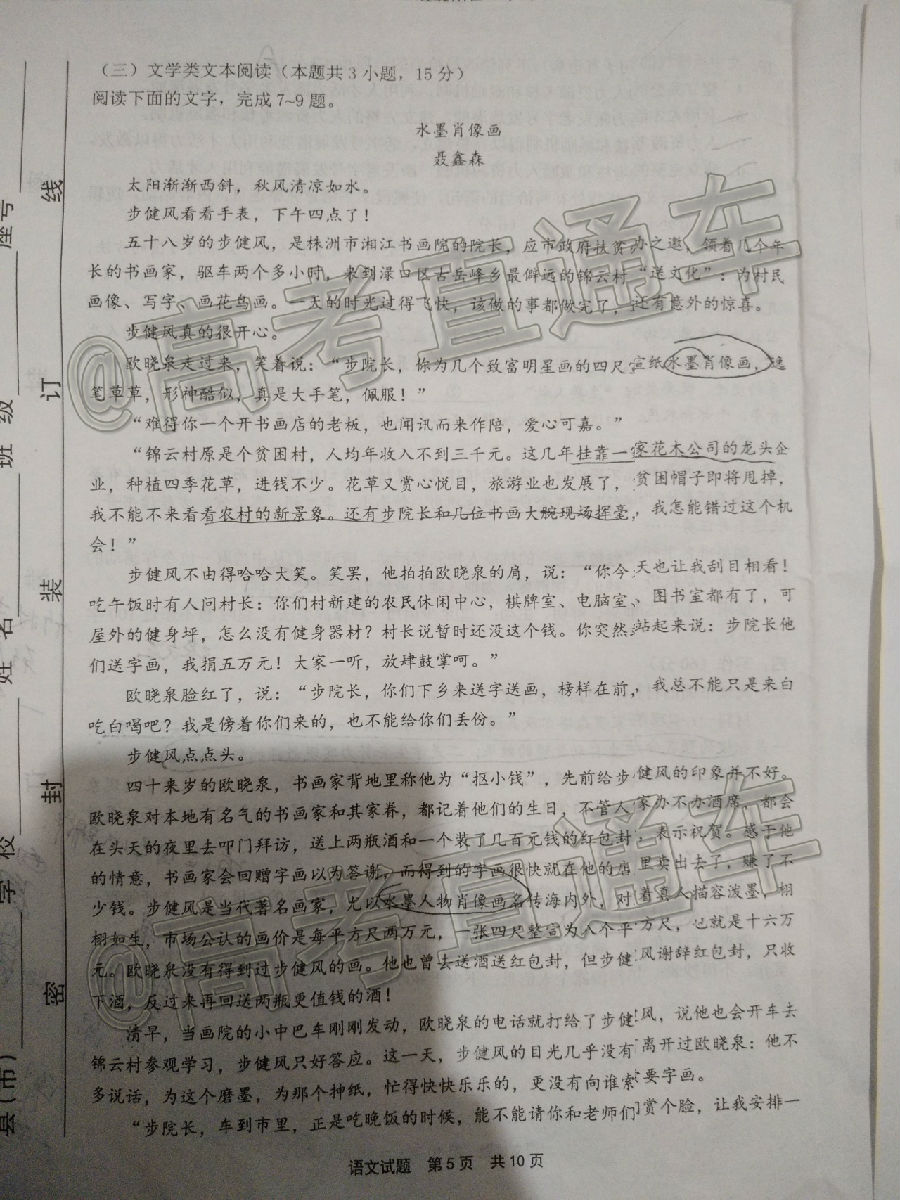 （三）文学类文本阅读（本题共3小题，15分）
阅读下面的文字，完成7~9题。
水墨肖像画
聂鑫森
太阳渐渐西斜，秋风清凉如水。
步健风看看手表，下午四点了！
五十八岁的步健风，是株洲市湘江书画院的院长，应市政府扶贫办之邀，领着几个年
长的书画家，驱车两个多小时，来到渌口区古岳峰乡最僻远的锦云村“送文化”：为村民
画像、写字、画花鸟画。一天的时光过得飞快，该做的事都做完了，还有意外的惊喜。
步健风真的很开心。
欧晓泉走过来，笑着说：“步院长，你为几个致富明星画的四尺宣纸水墨肖像画，逸
笔草草，形神酷似，真是大手笔，佩服！”
“难得你一个开书画店的老板，也闻讯而来作陪，爱心可嘉。”
“锦云村原是个贫困村，人均年收入不到三千元。这几年挂靠一家花木公司的龙头企
业，种植四季花草，进钱不少。花草又赏心悦目，旅游业也发展了，贫困帽子即将甩掉，
我不能不来看看农村的新景象。还有步院长和几位书画大腕现场挥毫，我怎能错过这个机
会！”
步健风不由得哈哈大笑。笑罢，他拍拍欧晓泉的肩，说：“你今天也让我刮目相看！
吃午饭时有人问村长：你们村新建的农民休闲中心，棋牌室、电脑室、图书室都有了，可
屋外的健身坪，怎么没有健身器材？村长说暂时还没这个钱。你突然站起来说：步院长他
们送字画，我捐五万元！大家一听，放肆鼓掌呵。”
欧晓泉脸红了，说：“步院长，你们下乡来送字送画，榜样在前，我总不能只是来白
吃白喝吧？我是傍着你们来的，也不能给你们丢份。”
步健风点点头。
四十来岁的欧晓泉，书画家背地里称他为“抠小钱”，先前给步健风的印象并不好。
欧晓泉对本地有名气的书画家和其家眷，都记着他们的生日，不管人家办不办酒席，都会
在头天的夜里去叩门拜访，送上两瓶酒和一个装了几百元钱的红包封，表示祝贺。感于他
的情意，书画家会回赠字画以为答谢，而得到的字画很快就在他的店里卖出去了，赚了不
少钱。步健风是当代著名画家，尤以水墨人物肖像画名传海内外，对着真人描容泼墨，栩
栩如生，市场公认的画价是每平方尺两万元，一张四尺整宣为八个平方尺，也就是十六万
元。欧晓泉没有得到过步健风的画。他也曾去送酒送红包封，但步健风谢辞红包封，只收
下酒，反过来再回送两瓶更值钱的酒！
清早，当画院的小中巴车刚刚发动，欧晓泉的电话就打给了步健风，说他也会开车去
锦云村参观学习，步健风只好答应。这一天，步健风的目光几乎没有离开过欧晓泉：他不
多说话，为这个磨墨，为那个抻纸，忙得快快乐乐的，更没有向谁索要字画。
“步院长，车到市里，正是吃晚饭的时候，能不能请你和老师们赏个脸，让我安排一
语文试题 第5页 共10页
线
订
装
封
密
座号
班级
姓名
学校
县（市）
@高考直通车
@高考直通车